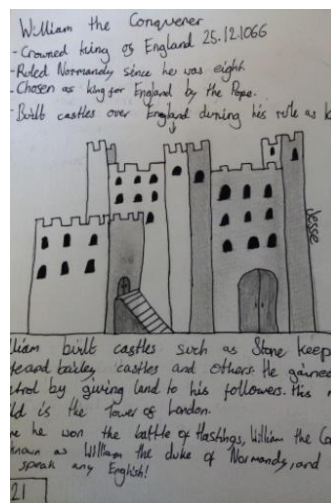 William the Conquerer
- Crowned king of England 25.12.1066
- Ruled Normandy since he was eight.
- Chosen as king for England by the Pope.
- Built castles over England during his rule as k
Jesse
lliam built castles such as Stone keep
te and bailey castles and others. He gained
trol by giving land to his followers. His
ld is the Tower of London.
he won the battle of Hastings, William the Co
nown as William the duke of Normandy, and
speak any English!
21